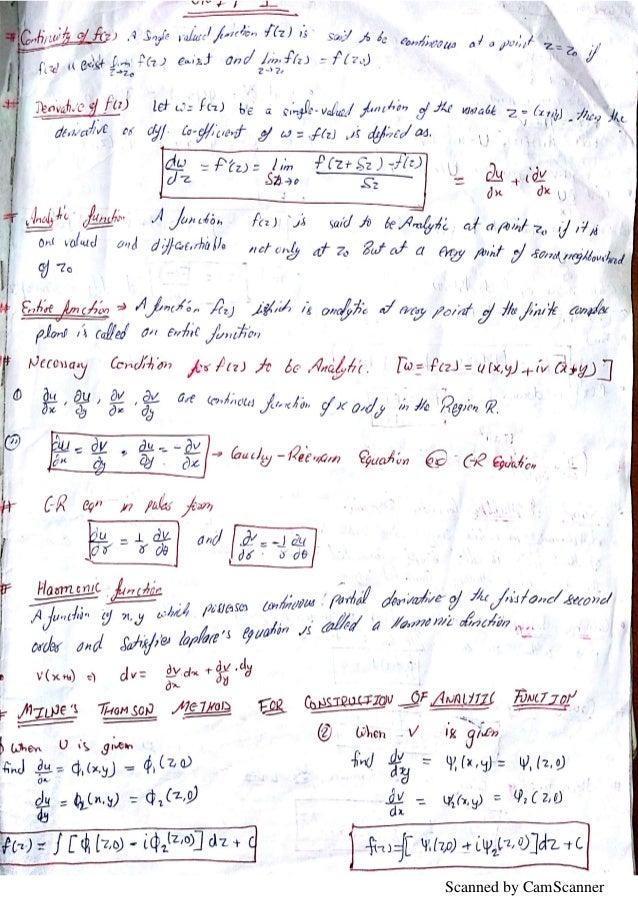 UNIT 1
# Continuity of f(z) A Single valued function f(z) is said to be continuous at a point z = z₀ if
f(z₀) exist lim z→z₀ f(z) exist and lim z→z₀ f(z) = f(z₀)
# Derivative of f(z) Let w = f(z) be a single-valued function of the variable z = (x+iy). then the
derivative or diff. co-efficient of w = f(z) is defined as.
dw/dz = f'(z) = lim δz→0 f(z+δz)-f(z) / δz = ∂u/∂x + i∂v/∂x
Analytic function A function f(z) is said to be Analytic at a point z₀ if it is
one valued and differentiable not only at z₀ But at a every point of some neighbourhood
of z₀
# Entire function → A function f(z) which is analytic at every point of the finite complex
plane is called an entire function
# Necessary Condition for f(z) to be Analytic. [w = f(z) = u(x,y) + iv(x,y)]
① ∂u/∂x, ∂u/∂y, ∂v/∂x, ∂v/∂y are continous function of x and y in the Region R.
② ∂u/∂x = ∂v/∂y, ∂u/∂y = -∂v/∂x → Cauchy-Reemann Equation or C-R Equation
# C-R eqn in polar form
∂u/∂r = 1/r ∂v/∂θ and ∂v/∂r = -1/r ∂u/∂θ
# Harmonic function
A function of x,y which possesses continuous partial derivative of the first and second
order and Satisfies laplace's equation is called a Harmonic function
dv = ∂v/∂x dx + ∂v/∂y . dy
MILNE'S THOMSON METHOD FOR CONSTRUCTION OF ANALYTIC FUNCTION
when U is given
find ∂u/∂x = ϕ₁(x,y) = ϕ₁(z,0)
∂u/∂y = ϕ₂(x,y) = ϕ₂(z,0)
f(z) = ∫[ϕ₁(z,0) - iϕ₂(z,0)] dz + C
② when V is given
find ∂v/∂y = ψ₁(x,y) = ψ₁(z,0)
∂v/∂x = ψ₂(x,y) = ψ₂(z,0)
f(z) = ∫[ψ₁(z,0) + iψ₂(z,0)]dz + C
Scanned by CamScanner